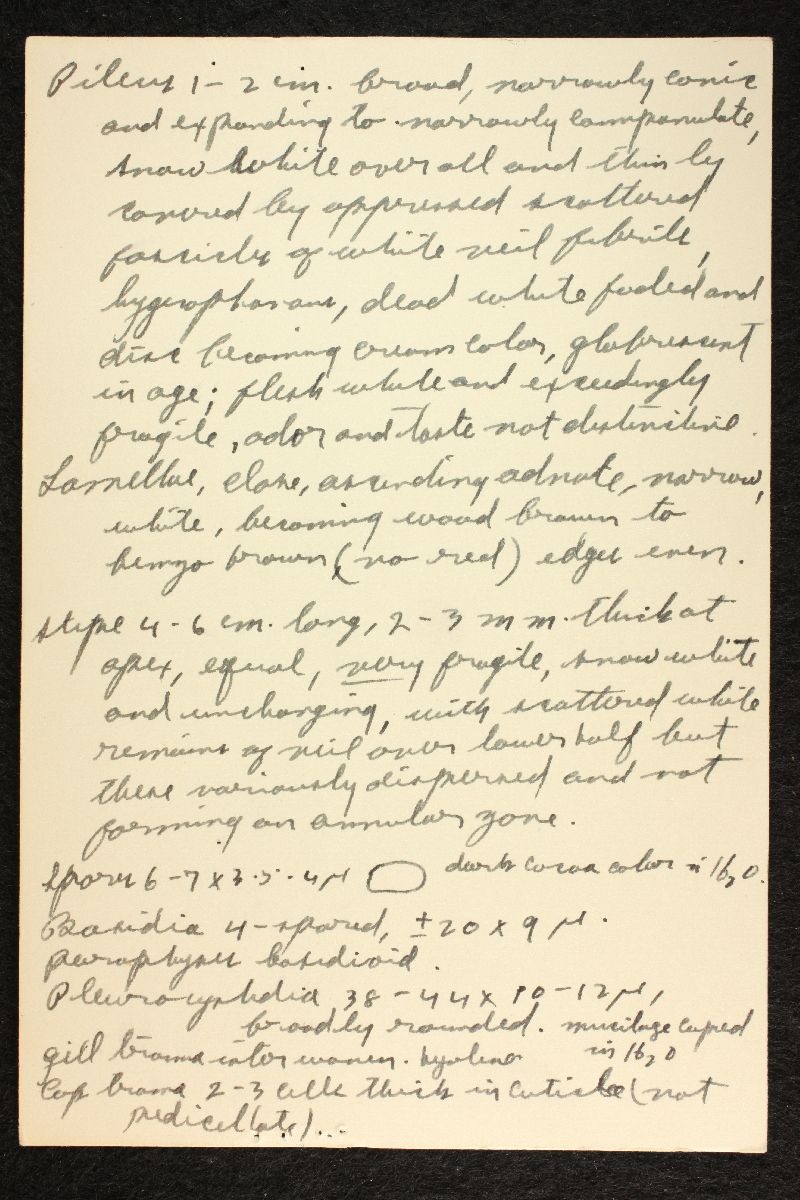 Pileus 1-2 cm. broad, narrowly conic
and expanding to narrowly campanulate,
snow white over all and thinly
covered by appressed scattered
fascicles of white veil fibrils,
hygrophanous, dead white faded and
disc becoming cream color, glabrescent
in age; flesh white and exceedingly
fragile, odor and taste not distinctive.
Lamellae, close, ascending adnate, narrow,
white, becoming wood brown to
benzo brown (no red) edges even.
stipe 4-6 cm. long, 2-3 mm. thick at
apex, equal, very fragile, snow white
and unchanging, with scattered white
remains of veil over lower half but
these variously dispersed and not
forming an annular zone.
Spores 6-7 x 3.5-4 μ dark cocoa color in H2O.
Basidia 4-spored, ± 20 x 9 μ.
paraphyses basidioid.
Pleurocystidia 38-44 x 10-12 μ,
broadly rounded. mucilage caped
in H2O
gill trama interwoven. hyaline
Cap trama 2-3 cells thick in cuticle (not
pedicellate)...